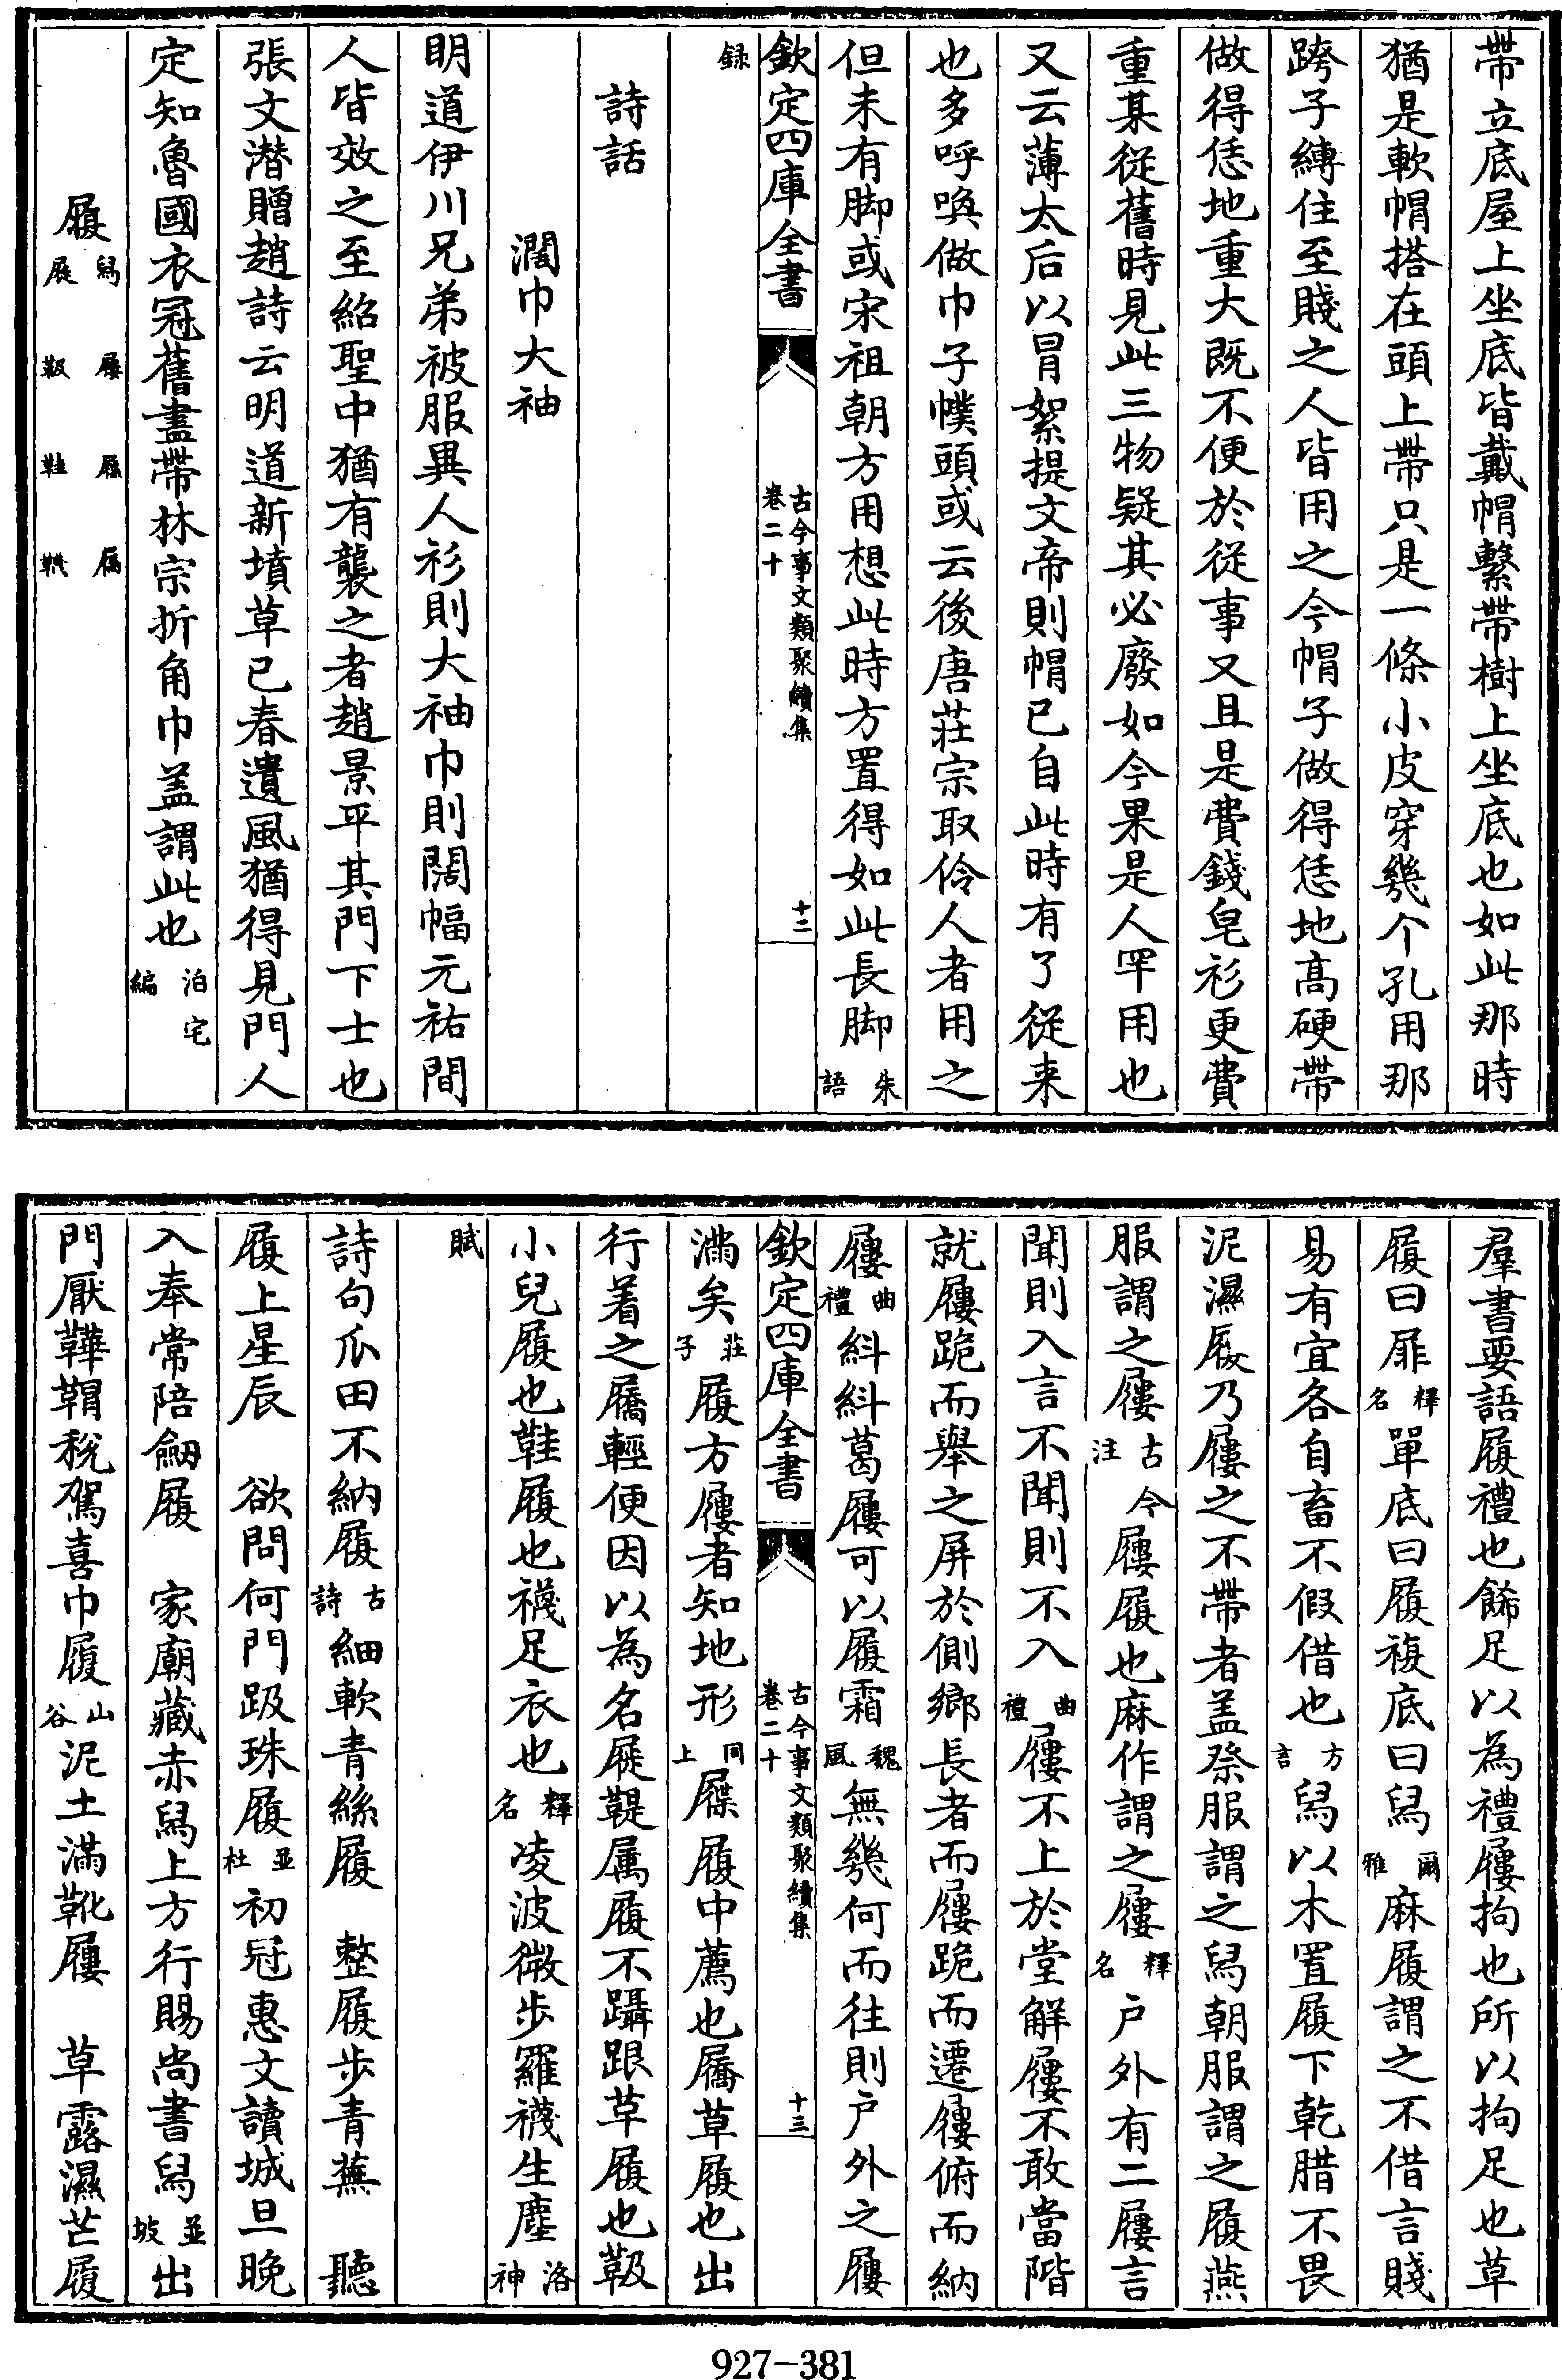 帶立底屋上坐底皆戴㡌繫帶樹上坐底也如此那時
猶是軟㡌搭在頭上帶只是一條小皮穿幾个孔用那
跨子縛住至賤之人皆用之今㡌子做得恁地高硬帶
做得恁地重大既不便於從事又且是費錢皂衫更費
重某從舊時見此三物疑其必廢如今果是人罕用也
又云薄太后以冒絮提文帝則㡌已自此時有了從来
也多呼喚做巾子幞頭或云後唐莊宗取伶人者用之
但未有脚或宋祖朝方用想此時方置得如此長脚朱語
欽定四庫全書
古今事文類聚續集
卷二十
十二
録
詩話
濶巾大袖
明道伊川兄弟被服異人衫則大袖巾則闊幅元祐間
人皆效之至紹聖中猶有襲之者趙景平其門下士也
張文潜贈趙詩云明道新墳草已春遺風猶得見門人
定知魯國衣冠舊盡帶林宗折角巾盖謂此也泊宅編
履舄屦屧屩屐靸鞋韈
羣書要語履禮也飾足以為禮屨拘也所以拘足也草
履曰扉釋名單底曰履複底曰舄爾雅麻履謂之不借言賤
易有宜各自畜不假借也方言舄以木置履下乾腊不畏
泥濕屐乃屨之不帶者盖祭服謂之舄朝服謂之履燕
服謂之屨古今注屨履也麻作謂之屨釋名户外有二屨言
聞則入言不聞則不入曲禮屨不上於堂解屨不敢當階
就屨跪而舉之屏於側鄉長者而屨跪而遷屨俯而納
屨曲禮糾糾葛屨可以履霜魏風無幾何而往則户外之屨
欽定四庫全書
古今事文類聚續集
卷二十
十三
滿矣莊子履方屨者知地形同上屧履中薦也屩草履也出
行着之屩輕便因以為名屣鞮属履不躡跟草履也靸
小兒履也鞋履也襪足衣也釋名凌波微步羅襪生塵洛神
賦
詩句瓜田不納履古詩細軟青絲履　整履步青蕪　聽
履上星辰　欲問何門趿珠履並杜初冠惠文讀城旦晚
入奉常陪劔履　家廟藏赤舄上方行賜尚書舄並坡出
門厭鞾鞙稅駕喜巾履山谷泥土滿靴屨　草露濕芒履
927-381